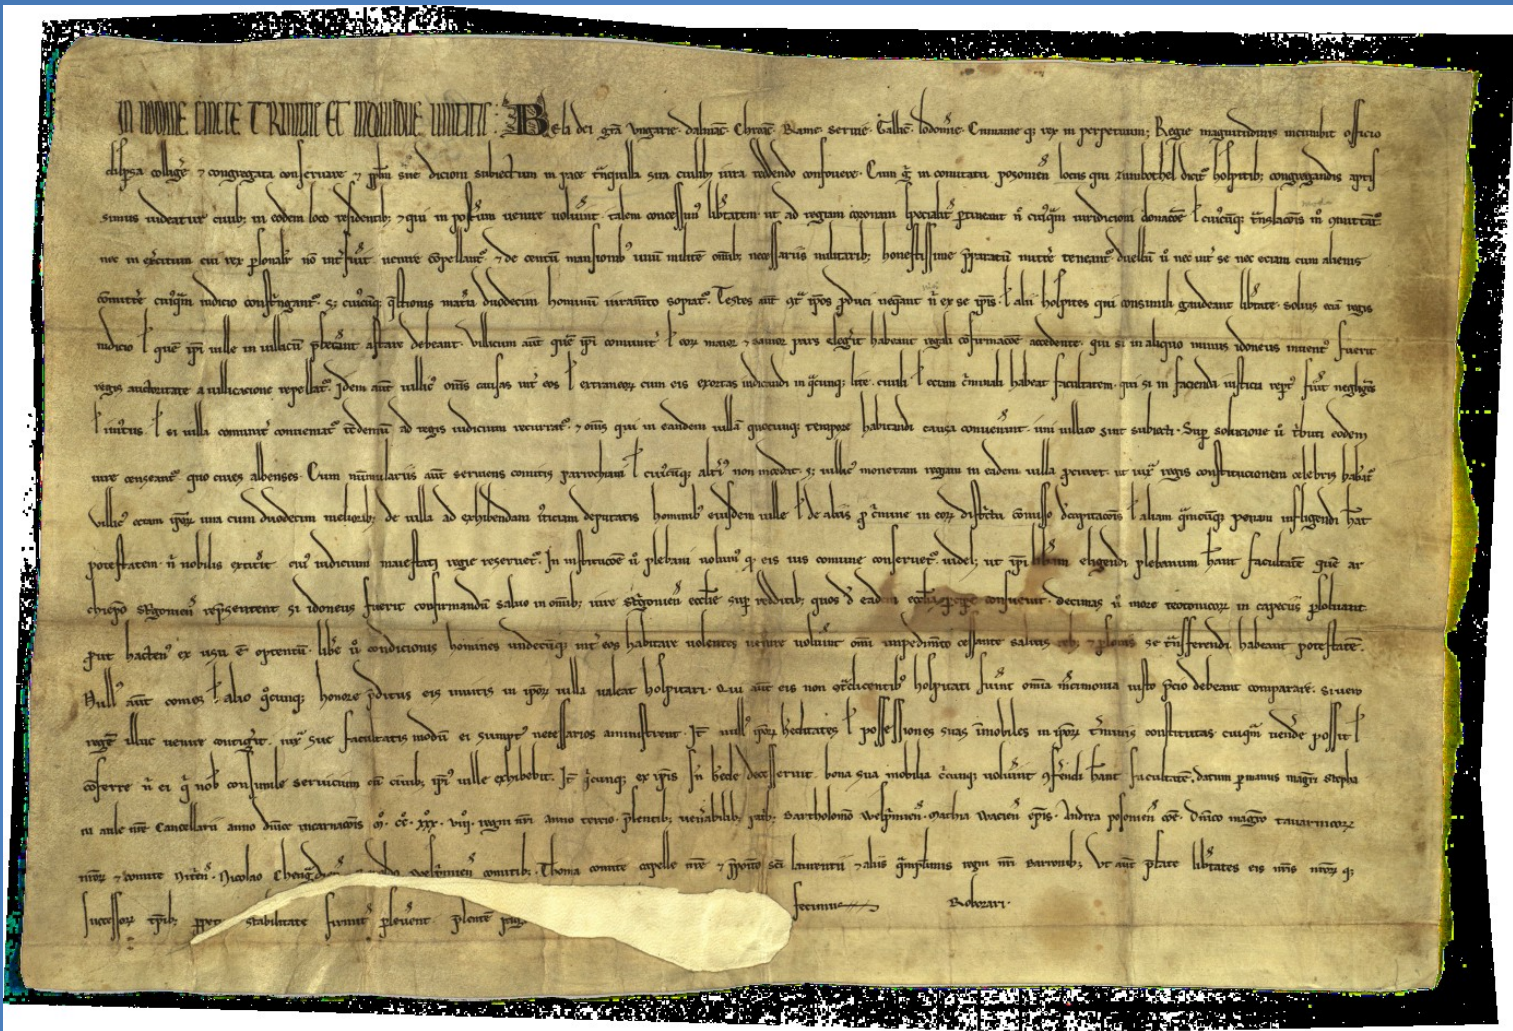 IN NOMINE SANCTE TRINITATIS ET INDIVIDUE UNITATIS. Bela dei gra Ungarie. dalmac. Chroac. Rame. servie. Gallic. lodomie. Cumanie q rex in perpetuum; Regie magnitudinis incumbit officio
dispsa collige 7 congregata conservare 7 pplm sue dicioni subiectum in pace tnquilla sua cuilib; iura reddendo confovere. Cum g in comitatu posonien locus qui zumbothel dicit hospitib; congregandis aptis
simus videatur civib; in eodem loco residentib; 7 qui in postum venire voluint talem concessim libtatem. ut ad regiam coronam specialit ptineant n cuiqm iuridicioni donacoe l cuicuq; tnslacois m
nec in exercitum cui rex psonalit no intfuit venire copellant. 7 de centu mansionib unu milite omib; necessariis militarib; honestissime pparatu mitte teneant. duellu u nec int se nec eciam cum alienis
comitte cuiqm iudicio constngant. s; cuicuq; qstionis matia duodecim hominu iuramto sopiat. Testes aut ipos pduci neqant n ex se ipis. l alii hospites qui consimili gaudeant libtate. solius eciam regis
iudicio l que ipi ville in villicu pfecint astare debeant. Villicum aut que ipi comunit l eor maior 7 sanior pars elegit habeant regali cofirmacoe accedente. qui si in aliquo minus idoneus invent fuerit
regis auctoritate a villicacione repellat. Idem aut villic omis causas int eos l extraneor cum eis exortas iudicandi in qcunq; lite civili. l eciam cminali habeat facultatem. qui si in facienda iusticia rept fuit negligens
l iniustus. l si villa comunit conveniat ad regis iudicium recurrat. 7 omis qui in eandem villa quocunq; tempore habitandi causa convenint. uni villico sint subiecti. Sup solucione u tbuti eodem
iure censeant quo cives albenses. Cum numulariis aut serviens comitis parrochiani l cuicuq; alti non incedat. s; villic monetam regiam in eadem villa pcuret. ut iux regis constitucionem celebris habeat
Villic eciam ipor una cum duodecim meliorib; de villa ad exhibendam iusticiam deputatis hominib eiusdem ville l de aliis p cmine in eor distictu comisso decapitacois l aliam qmcuq; penam infligendi habeat
potestatem. n nobilis extitit cui iudicium maiestati regie reservet. In institucoe u plebani volum q eis ius comune conservet. videl; ut ipi libum eligendi plebanum habeant facultate que ar
chiepo stigonien repsentent si idoneus fuerit confirmandu salvo in omib; iure stigonien ecclie sup redditib; quos d eadem ecclia pcipe consuevit. decimas u more teotonicor in capeciis psolvant
put hacten ex usu e optentu. libe u condicionis homines undecuq; int eos habitare volentes venire voluint omi impedimto cessante salvis reb; 7 psonis se tnsferendi habeant potestate.
Null aut comes l alio qcunq; honore pditus eis invitis in ipor villa valeat hospitari. Qui aut eis non contradicentib hospitati fuint omia victimonia iusto pcio debeant comparare. Si vero
rege illuc venire contigit. iux sue facultatis modu ei sumpt necessarios aministrent. It null ipor heditates l possessiones suas imobiles in ipor tminis constitutas cuiqm vende possit l
coferre n ei q nob consimile servicium cu civib; ipi ville exhibebit. It qcunq; ex ipis sn hede decesserint. bona sua mobilia cuicunq; voluint confendi habeant facultate. datum p manus magri Stepha
ni aule nre Cancellarii anno dnice incarnacois m. cc. xxx. viii. regni nri anno tercio. psentib; venabilib; patb; Bartholomo Wesprimien. Mathia Wacien epis. Andrea posonien coe. Dnico magro tavarnicor
nror 7 comite Nitrien. Nicolao Wesprimien comitib; Thoma comite capelle nre 7 pposito sci laurentii 7 aliis qmplurimis regni nri Baronib; Ut aut pfate libtates eis nris nror q;
successor tpib; stabilitate firmit psevent psente fecimus Roborari.